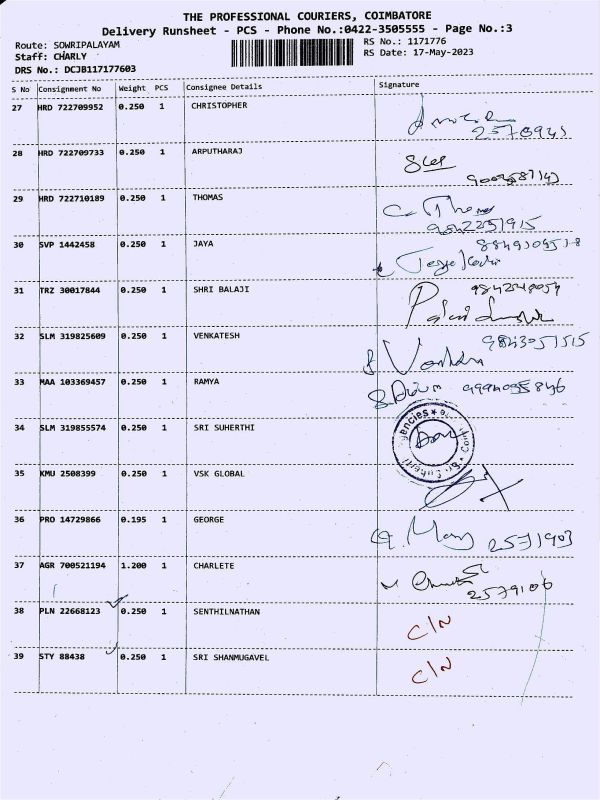 THE PROFESSIONAL COURIERS, COIMBATORE
Delivery Runsheet - PCS - Phone No.:0422-3505555 - Page No.:3
Route: SOWRIPALAYAM RS No.: 1171776
Staff: CHARLY RS Date: 17-May-2023
DRS No.: DCJB117177603
S No Consignment No Weight PCS Consignee Details Signature
27 HRD 722709952 0.250 1 CHRISTOPHER
28 HRD 722709733 0.250 1 ARPUTHARAJ
29 HRD 722710189 0.250 1 THOMAS
30 SVP 1442458 0.250 1 JAYA
31 TRZ 30017844 0.250 1 SHRI BALAJI
32 SLM 319825609 0.250 1 VENKATESH
9843051515
33 MAA 103369457 0.250 1 RAMYA
34 SLM 319855574 0.250 1 SRI SUHERTHI
35 KMU 2508399 0.250 1 VSK GLOBAL
36 PRO 14729866 0.195 1 GEORGE
2571903
37 AGR 700521194 1.200 1 CHARLETE
2579106
38 PLN 22668123 0.250 1 SENTHILNATHAN C/N
39 STY 88438 0.250 1 SRI SHANMUGAVEL C/N